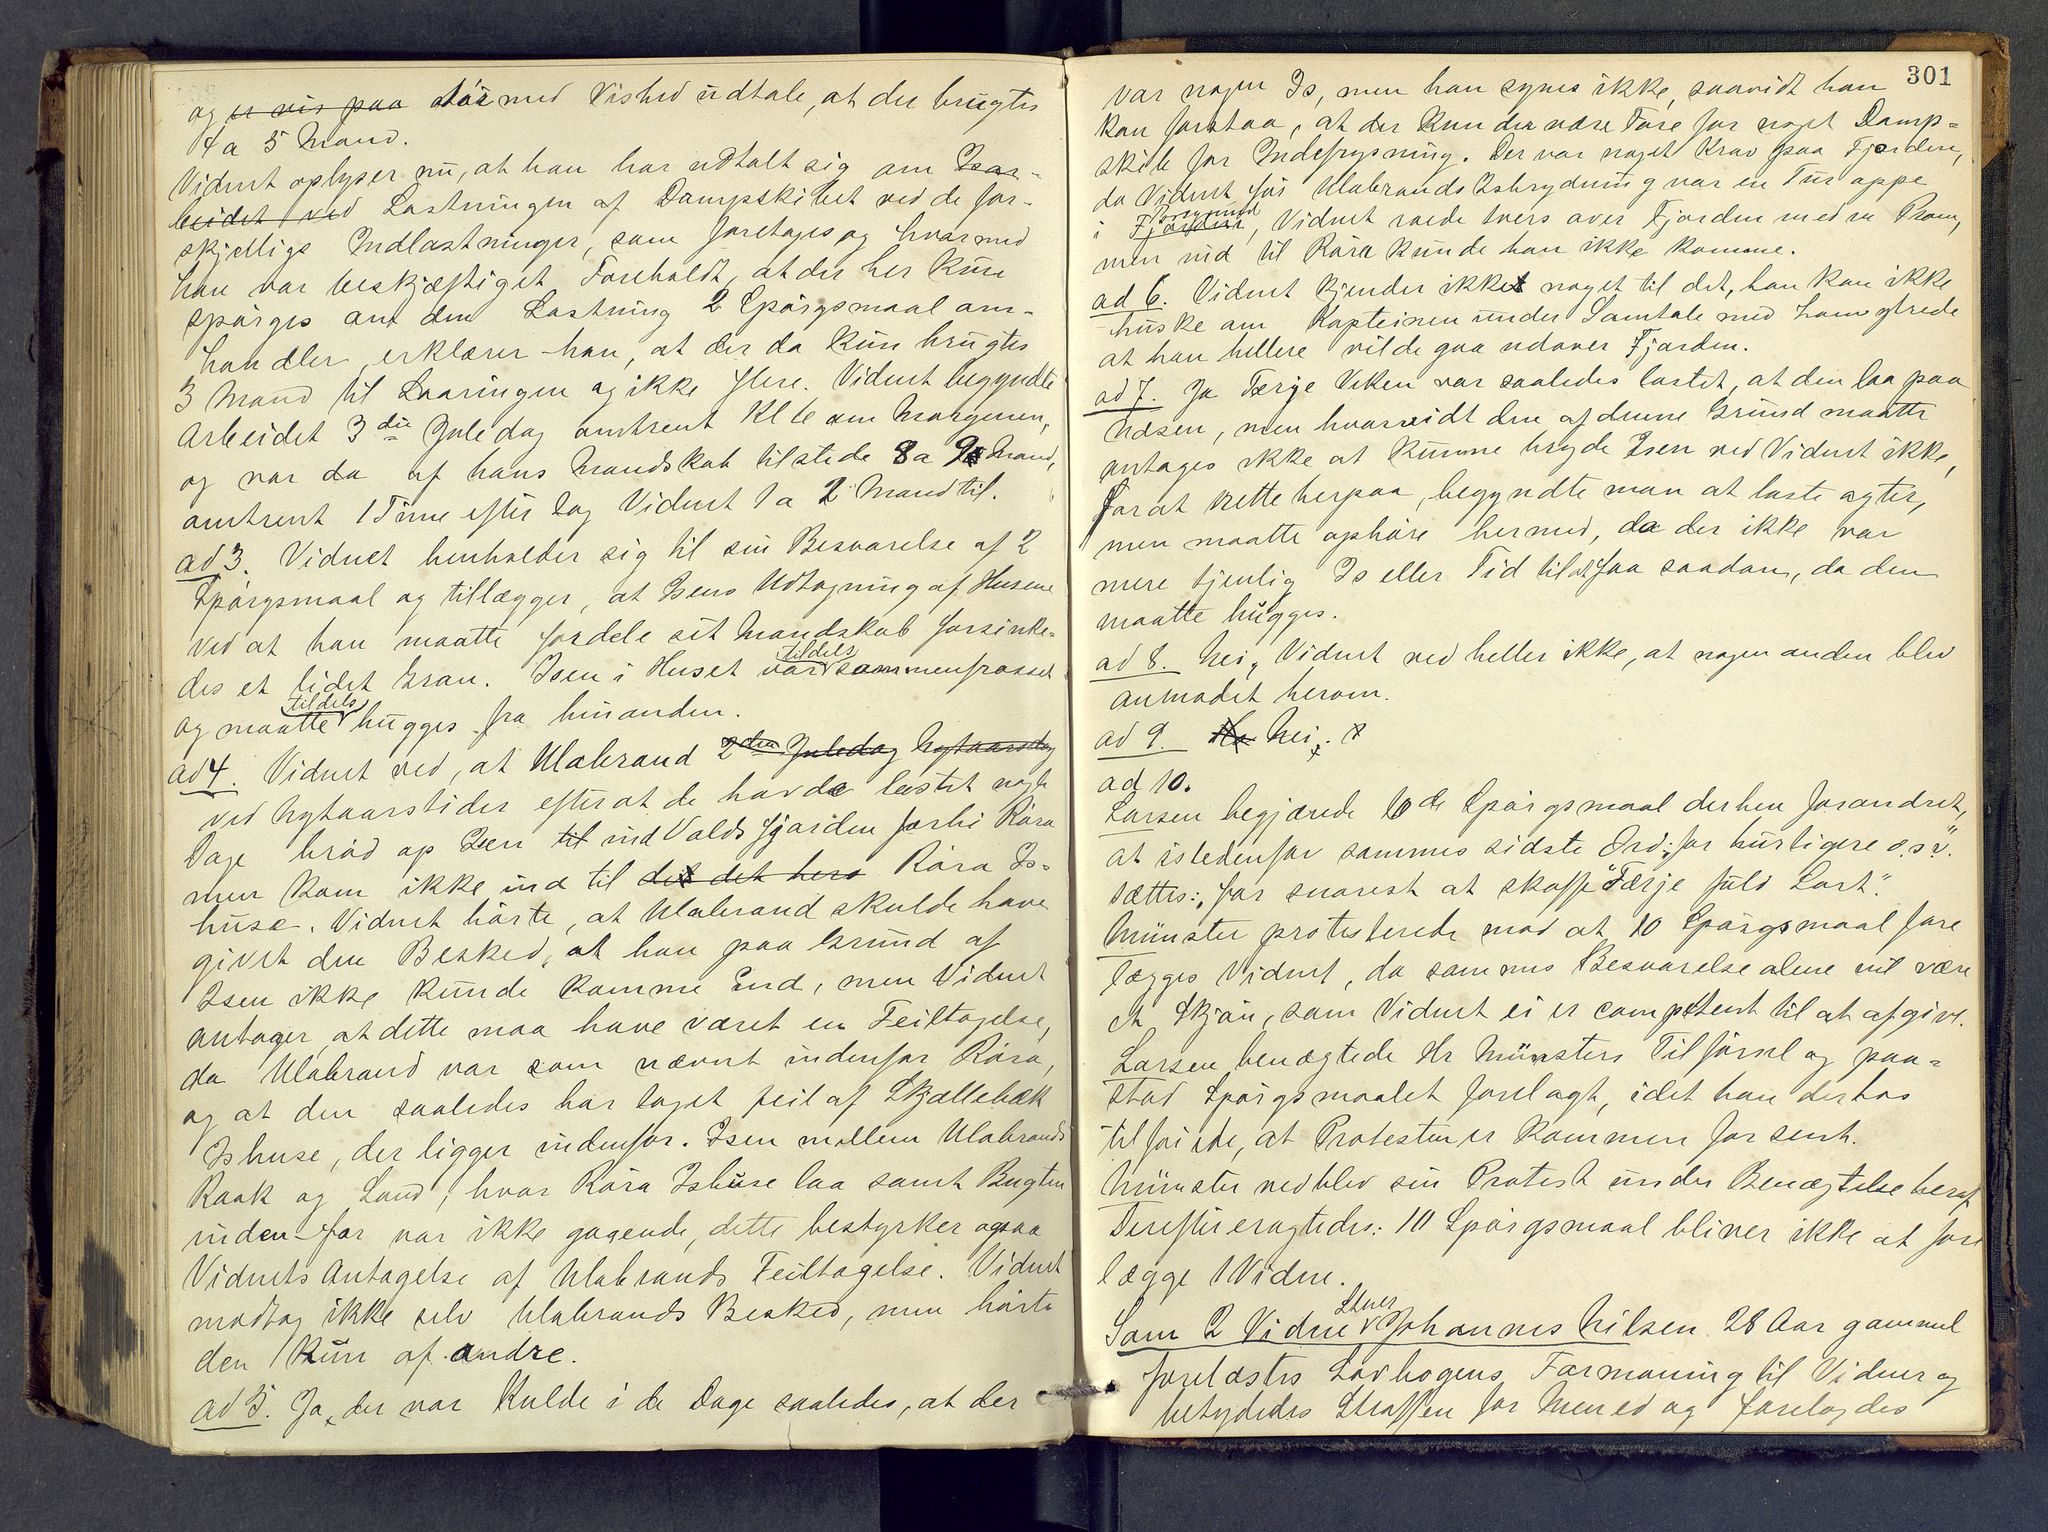 og er vis paa tör med Vished udtale, at der brugtes
4 a 5 Mand.
Vidnet oplyser nu, at han har udtalt sig om Isar-
beidet ved Lastningen af Dampskibet ved de for-
skjellige Indlastninger, som foretoges og hvormed
han var beskjæftiget. Foreholdt, at der her kun
spörges om den Lastning 2 Spörgsmaal om-
handler, erklærer han, at der da kun brugtes
3 Mand til Laaringen og ikke flere. Vidnet begyndte
Arbeidet 3die Juledag omtrent Kl 6 om Morgenen,
og var da af hans Mandskab tilstede 8 a 9 Mand,
omtrent 1 Time efter tog Vidnet 1 a 2 Mand til.
ad 3. Vidnet henholder sig til sin Besvarelse af 2
Spörgsmaal og tillægger, at Isens Udtagning af Husene
ved at han maatte fordele sit Mandskab forsinke-
des et lidet Gran. Isen i Huset var tildels sammenfrosset
og maatte tildels hugges fra hinanden.
ad 4. Vidnet ved, at Ulabrand 2den Juledag Nytaarsdag
ved Nytaarstider efterat de havde lastet nogle
Dage bröd op Isen til ind Valdsfjorden forbi Röra
men kom ikke ind til det det hero Röra Is-
huse. Vidnet hörte, at Ulabrand skulde have
givet den Besked, at han paa Grund af
Isen ikke kunde komme ind, men Vidnet
antager, at dette maa have været en Feiltagelse,
da Ulabrand var som nævnt indenfor Röra,
og at den saaledes har taget feil af Skjællebæk
Ishuse, der ligger indenfor. Isen mellem Ulabrands
Raak og Land, hvor Röra Ishuse laa samt Bugten
inden for var ikke gagende, dette bestyrker ogsaa
Vidnets Antagelse af Ulabrands Feiltagelse. Vidnet
modtog ikke selv Ulabrands Besked, men hörte
den kun af andre.
ad 5. Ja, der var Kulde i de Dage saaledes, at der
301
var nogen Is, men han synes ikke, saavidt han
kan forstaa, at der kunde være Fare for noget Damp-
skib for Indefrysning. Der var noget Krav paa Fjorden,
da Vidnet för Ulabrands Isbrydning var en Tur oppe
i Fjorden Porsgrund, Vidnet roede tvers over Fjorden med en Pram,
men ind til Röra kunde han ikke komme.
ad 6. Vidnet kjender ikke noget til det, han kan ikke
huske om Kapteinen under Samtale med ham ytrede
at han hellere vilde gaa udover Fjorden.
ad 7. Ja Terje Viken var saaledes lastet, at den laa paa
Næsen, men hvorvidt den af denne Grund maatte
antages ikke at kunne bryde Isen ved Vidnet ikke,
For at rette herpaa, begyndte man at laste agter,
men maatte ophöre hermed, da der ikke var
mere tjenlig Is eller Tid til at faa saadan, da den
maatte hugges.
ad 8. Nei, Vidnet ved heller ikke, at nogen anden blev
anmodet herom.
ad 9. Ha Nei.
ad 10.
Larsen begjærede 10de Spörgsmaal derhen forandret,
at istedenfor sammes sidste Ord: „for hurtigere o.s.v."
sættes: „for snarest at skaffe Færje fuld Last."
Münster protesterede mod at 10 Spörgsmaal fore
lægges Vidnet, da sammes Besvarelse alene vil være
et Skjön, som Vidnet ei er competent til at afgive.
Larsen benægtede Hr Münsters Tilförsel og paa-
stod Spörgsmaalet forelagt, idet han derhos
tilföiede, at Protesten er kommen for sent.
Münster vedblev sin Protest under Benægtelse heraf.
Derefter eragtedes: 10 Spörgsmaal bliver ikke at fore
lægge 1 Vidne.
Som 2 Vidne Johannes Nilsen 28 Aar gammel
forelæstes Lovbogens Formaning til Vidner og
betydedes Straffen for Mened og forelagdes